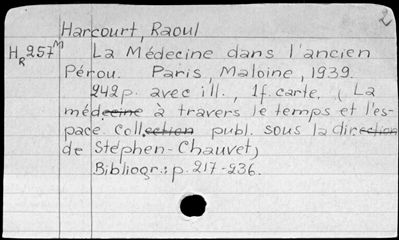 2
Harcourt, Raoul
HR257M La Médecine dans l'ancien
Pérou. Paris, Maloine, 1939.
242p. avec ill., 1f. carte, (La
médecine à travers le temps et l'es-
pace collection publ. sous la direction
de Stéphen-Chauvet)
Bibliogr.: p. 217-236.